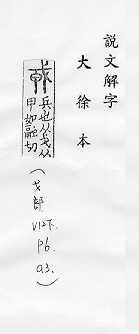 説文解字
大徐本
兵也从戈从
甲如融切
(戈部
V12下.
p6.
a3.)